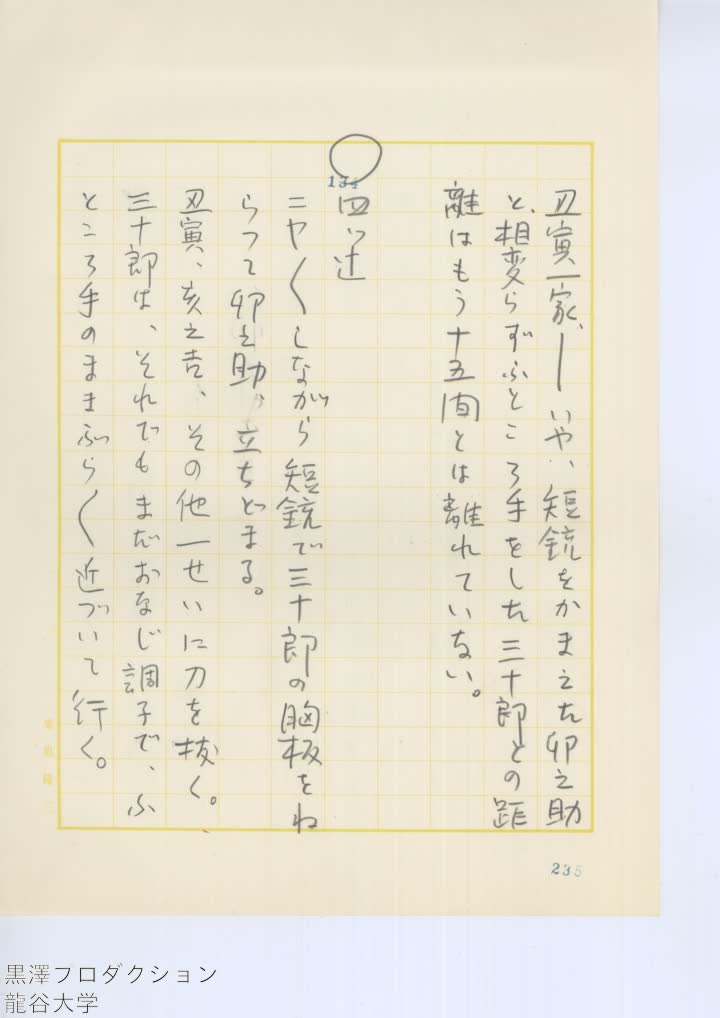 丑寅一家、―いや、短銃をかまえた卯之助
と、相変らずふところ手をした三十郎との距
離はもう十五間とは離れていない。
134
四ッ辻
ニヤ〱しながら短銃で三十郎の胸板をね
らって卯之助、立ちどまる。
丑寅、亥之吉、その他一せいに刀を抜く。
三十郎は、それでもまだおなじ調子で、ふ
ところ手のままぶら〱近づいて行く。
235
黒澤プロダクション
龍谷大学